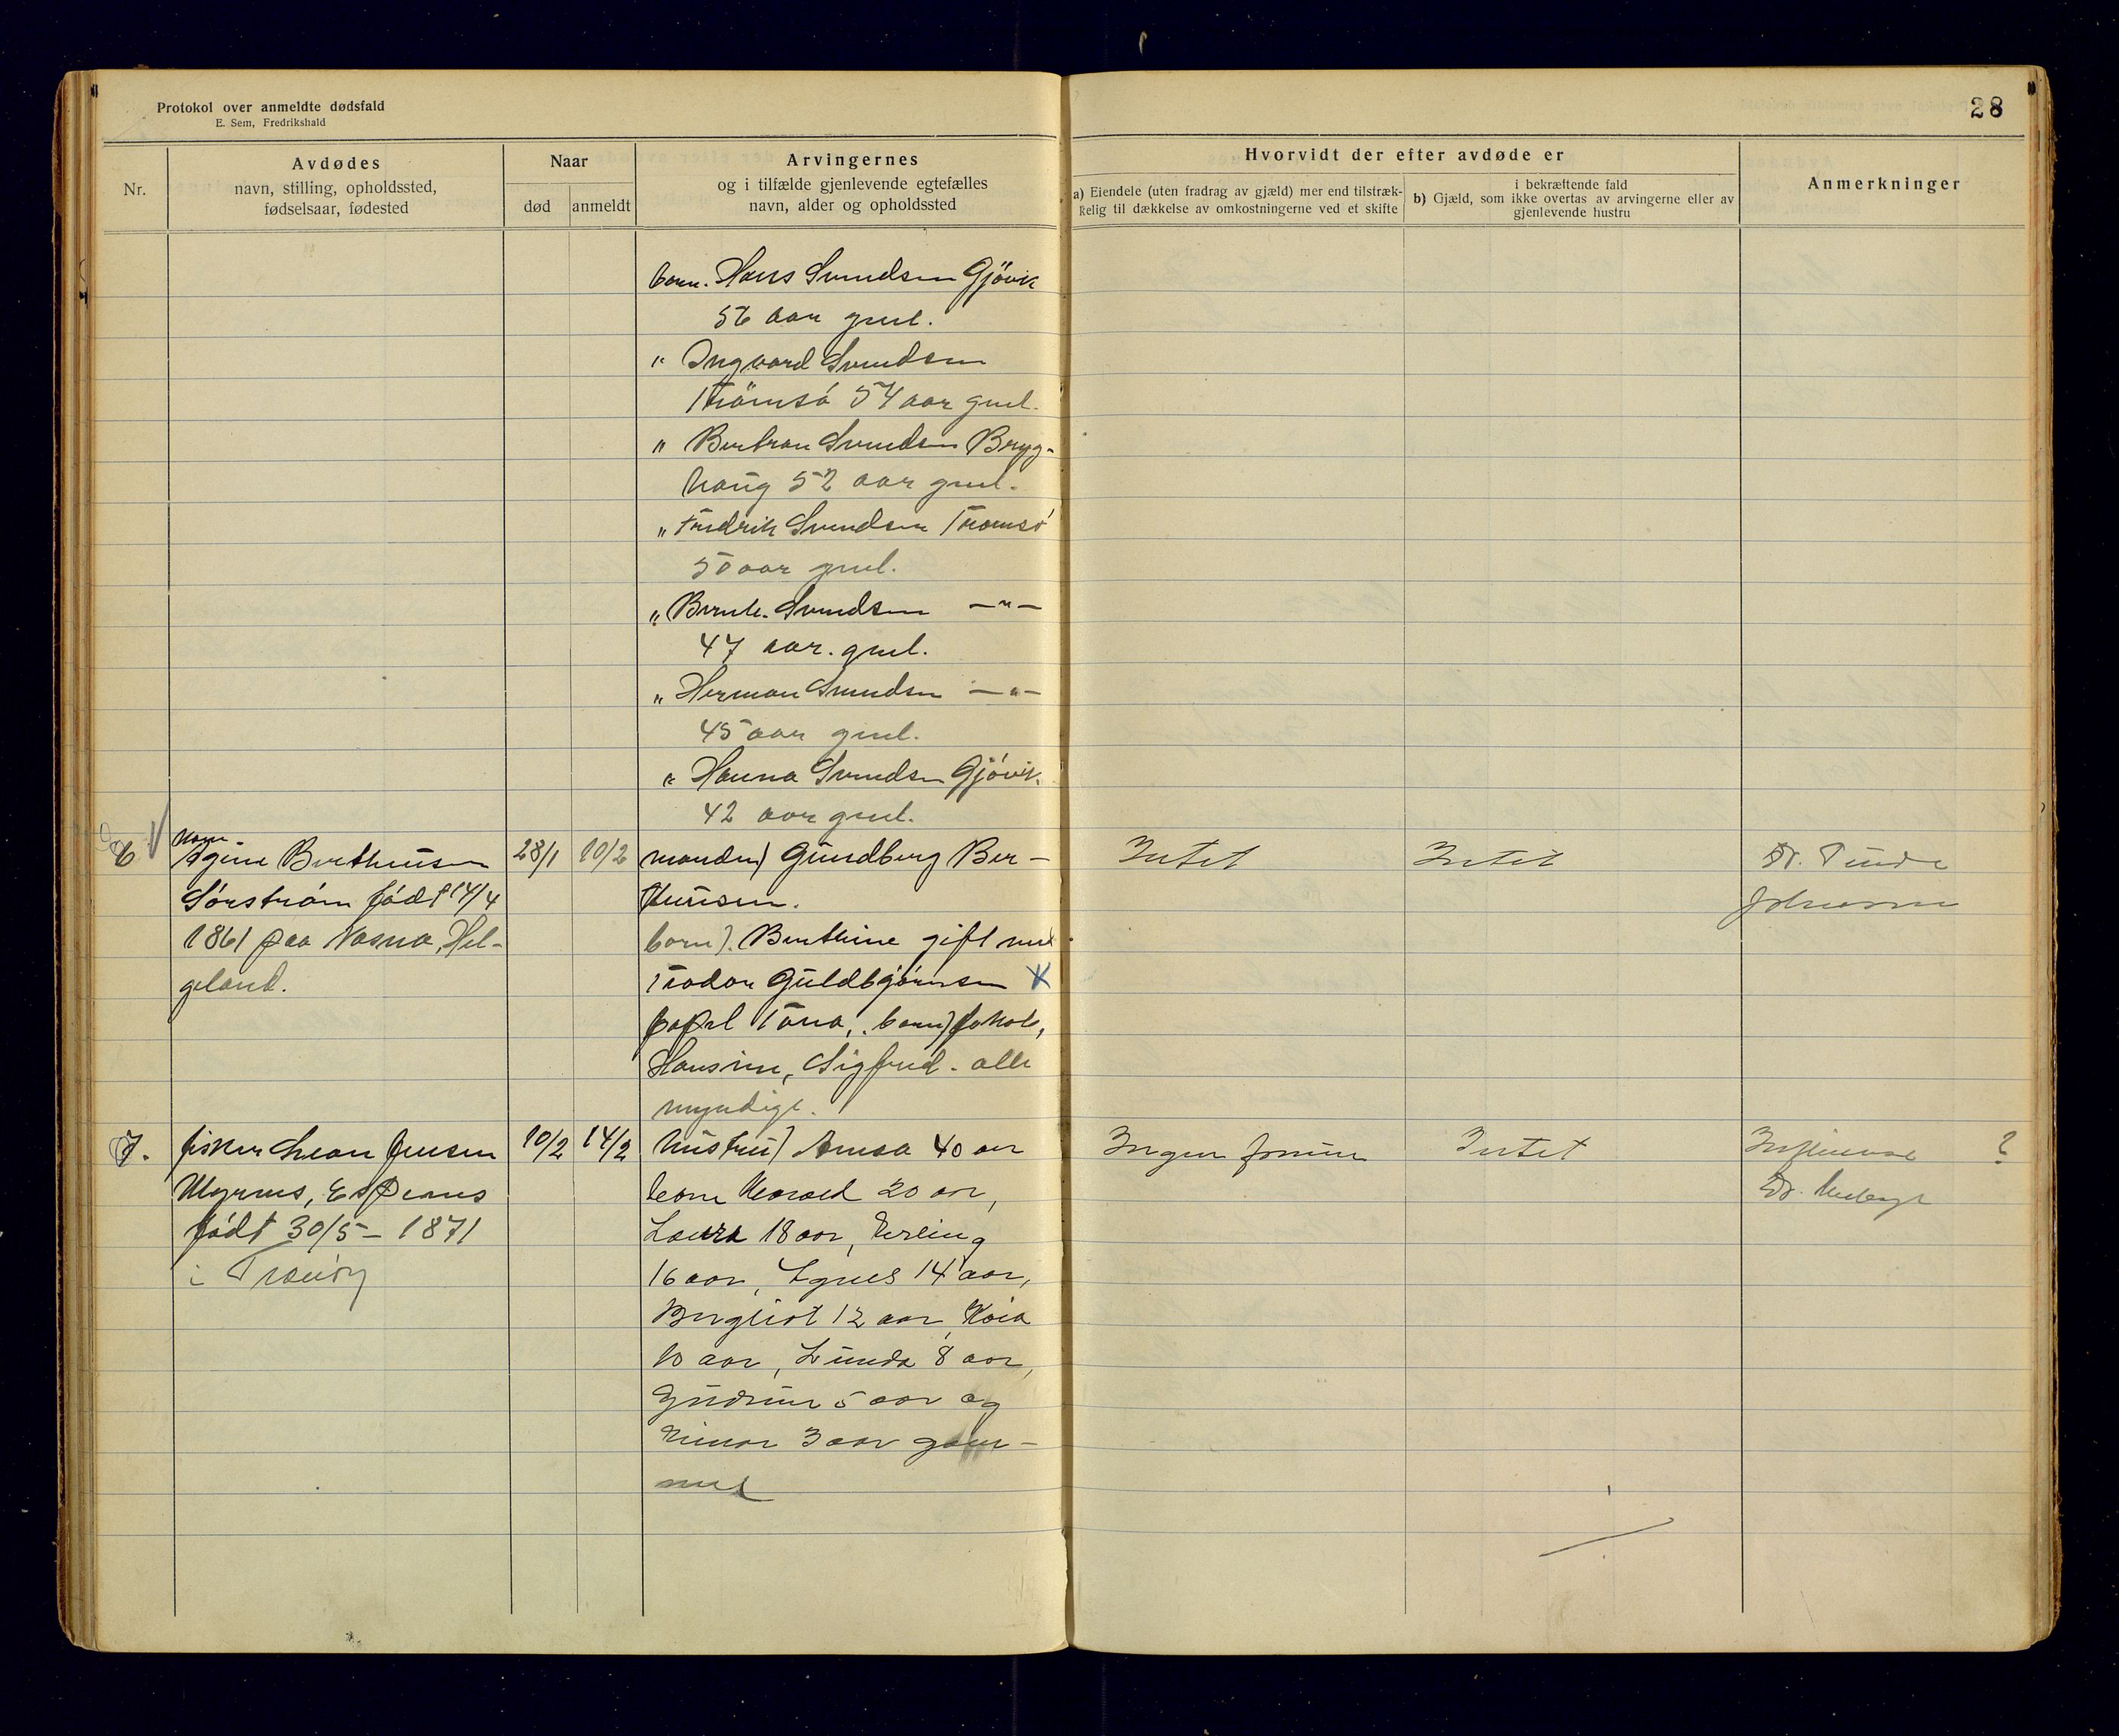 Protokol over anmeldte dødsfald
E. Sem, Fredrikshald
28
Nr.
Avdødes
navn, stilling, opholdssted,
fødselsaar, fødested
Naar
død
anmeldt
Arvingernes
og i tilfælde gjenlevende egtefælles
navn, alder og opholdssted
Hvorvidt der efter avdøde er
a) Eiendele (uten fradrag av gjæld) mer end tilstræk-
kelig til dækkelse av omkostningerne ved et skifte
i bekræftende fald
b) Gjæld, som ikke overtas av arvingerne eller av
gjenlevende hustru
Anmerkninger
barn. Hans Svendsen Gjövik
56 aar gml.
" Ingvard Svendsen
Tromsö 54 aar gml.
" Bertran Svendsen Bryg-
haug 52 aar gml.
" Fredrik Svendsen Tromsö
50 aar gml.
" Svendsen —"—
47 aar. gml.
" Herman Svendsen —"—
45 aar gml.
" Hanna Svendsen Gjövik.
42 aar gml.
6
Kone.
Bertheusen
Sörström född 14/4
1861 paa Vasna, Hel-
geland.
28/1
10/2
manden) Gundberg Ber-
theusen.
barn). Berthine gift med
Teodor Guldbjörnsen
bopæl Tana, barn) Jakob,
Hansine, Sigfrid. alle
myndige.
Intet
Intet
Dr. Tunde
Johnsen
7.
fisker Jensen
Myrnes,
födt 30/5 – 1871
i Tranöy
10/2
14/2
hustru) Anna 40 aar
barn Harald 20 aar,
Laura 18 aar, Erling
16 aar, Agnes 14 aar,
Bergliot 12 aar,
10 aar, 8 aar,
Gudrun 5 aar og
Einar 3 aar gam-
mel
Ingen formue
Intet
Influensa ?
Dr.